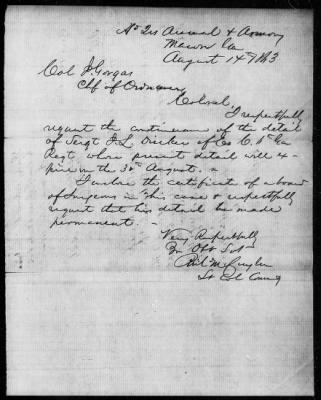 Hd Qrs Arsenal & Armory
Macon Ga
August 14th /63
Col J Gorgas
Chf of Ordnance
Colonel,
I respectfully
request the continuance of the detail
of Sergt J. L. of Co C, Ga
Regt, whose present detail will ex-
pire on the 30th August.
I enclose the certificate of a board
of Surgeons in this case & respectfully
request that his detail be made
permanent.
Very Respectfully
Yr Obt Svt
Lt Col Comg